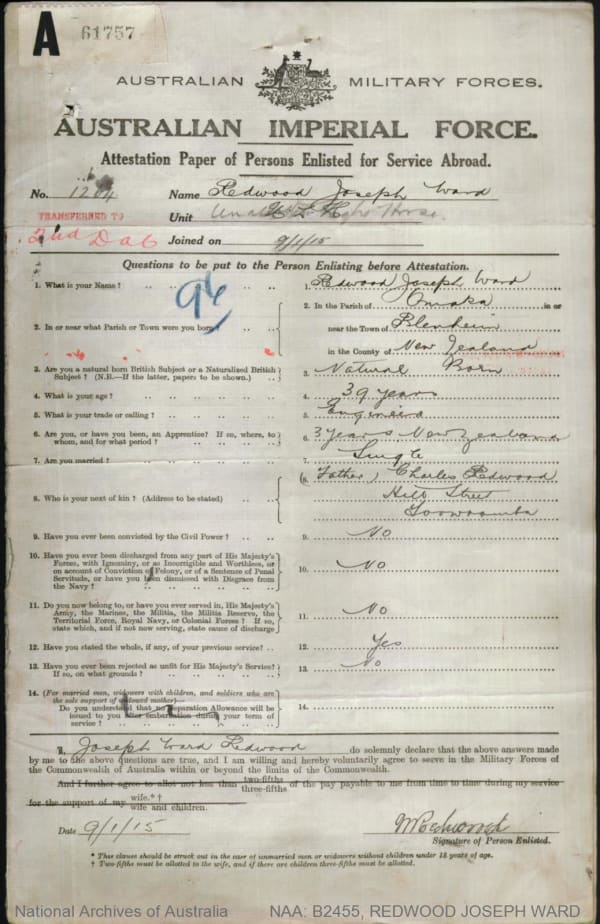 A
61757
AUSTRALIAN MILITARY FORCES.
AUSTRALIAN IMPERIAL FORCE.
Attestation Paper of Persons Enlisted for Service Abroad.
No. 1264 Name Redwood Joseph Ward
TRANSFERRED TO Unit Horse
2nd DAC Joined on 9/1/15
Questions to be put to the Person Enlisting before Attestation.
96
1. What is your Name? 1. Redwood Joseph Ward
2. In or near what Parish or Town were you born? 2. In the Parish of Omaka in or
near the Town of Blenheim
in the County of New Zealand
3. Are you a natural born British Subject or a Naturalized British 3. Natural Born
Subject? (N.B.—If the latter, papers to be shown.)
4. What is your age? 4. 39 years
5. What is your trade or calling? 5. Engineer
6. Are you, or have you been, an Apprentice? If so, where, to 6. 3 years New Zealand
whom, and for what period?
7. Are you married? 7. Single
8. Who is your next of kin? (Address to be stated) 8. (Father) Charles Redwood
Street
Toowoomba
9. Have you ever been convicted by the Civil Power? 9. No
10. Have you ever been discharged from any part of His Majesty's 10. No
Forces, with Ignominy, or as Incorrigible and Worthless, or
on account of Conviction of Felony, or of a Sentence of Penal
Servitude, or have you been dismissed with Disgrace from
the Navy?
11. Do you now belong to, or have you ever served in, His Majesty's 11. No
Army, the Marines, the Militia, the Militia Reserve, the
Territorial Force, Royal Navy, or Colonial Forces? If so,
state which, and if not now serving, state cause of discharge
12. Have you stated the whole, if any, of your previous service? 12. Yes
13. Have you ever been rejected as unfit for His Majesty's Service? 13. No
If so, on what grounds?
14. (For married men, widowers with children, and soldiers who are 14.
the sole support of widowed mother)—
Do you understand that no Separation Allowance will be
issued to you after embarkation during your term of
service?
I, Joseph Ward Redwood do solemnly declare that the above answers made
by me to the above questions are true, and I am willing and hereby voluntarily agree to serve in the Military Forces of
the Commonwealth of Australia within or beyond the limits of the Commonwealth.
And I further agree to allot not less than two-fifths three-fifths of the pay payable to me from time to time during my service
for the support of my wife.*†
wife and children.
Date 9/1/15 JWRedwood
Signature of Person Enlisted.
* This clause should be struck out in the case of unmarried men or widowers without children under 18 years of age.
† Two-fifths must be allotted to the wife, and if there are children three-fifths must be allotted.
National Archives of Australia NAA: B2455, REDWOOD JOSEPH WARD